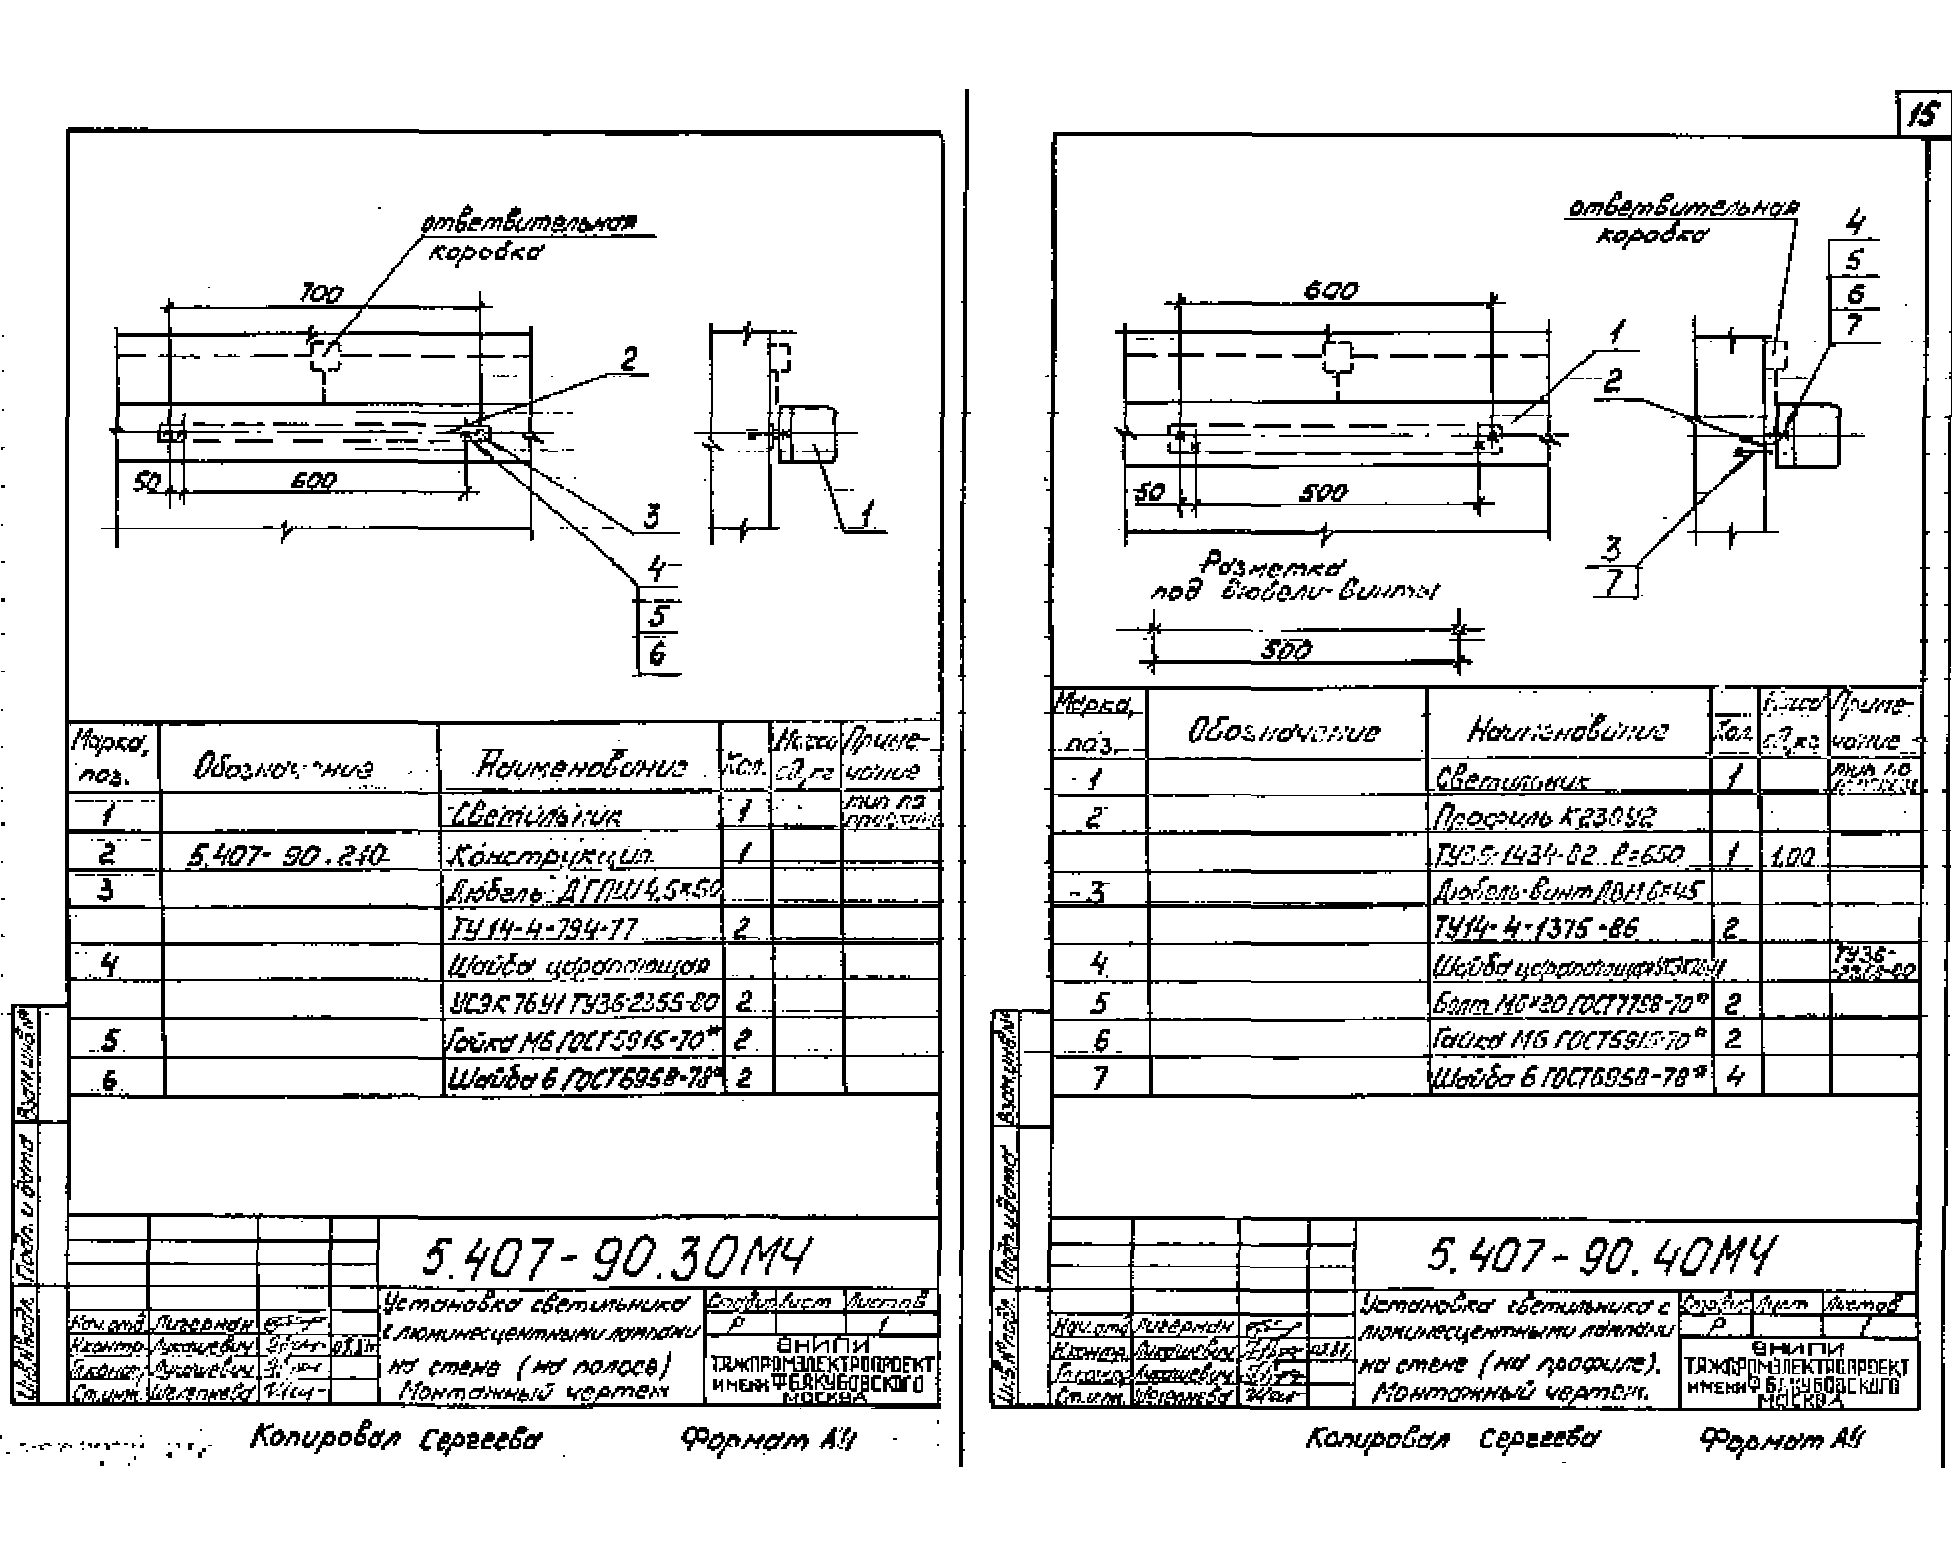 ответвительная
коробка
700
2
50
600
3
1
4
5
6
Марка, поз. Обозначение Наименование Кол. Масса ед, кг Приме-чание
1 Светильник 1 тип по
2 5.407-90.210 Конструкция 1
3 Дюбель ДГПШ 4,5×50
ТУ 14-4-794-77 2
4 Шайба царапающая
УСЭК 76У1 ТУ36-2355-80 2
5 Гайка М6 ГОСТ 5915-70* 2
6 Шайба 6 ГОСТ 6958-78* 2
Взам.инв.№
Подп. и дата
Инв.№ подл.
5.407-90.30МЧ
Установка светильника
с люминесцентными лампами
на стене (на полосе)
Монтажный чертеж
Стадия Лист Листов
Р 1
ВНИПИ
ТЯЖПРОМЭЛЕКТРОПРОЕКТ
ИМЕНИ Ф.Б.ЯКУБОВСКОГО
МОСКВА
Нач.отд. Лигерман
Н.контр. Лукашевич
Лукашевич
Ст.инж. Шелепнева
Копировал Сергеева Формат А4
15
ответвительная
коробка
4
5
6
7
600
1
2
50
500
3
7
Разметка
под дюбели-винты
500
Марка, поз. Обозначение Наименование Кол. Масса ед, кг Приме-чание
1 Светильник 1 тип по
2 Профиль К230У2
ТУ36-1434-82 ℓ=650 1 1,00
3 Дюбель-винт ДВМ 6×45
ТУ14-4-1375-86 2
4 Шайба царапающая ТУ36-
5 Болт М6×20 ГОСТ 7798-70* 2
6 Гайка М6 ГОСТ 5915-70* 2
7 Шайба 6 ГОСТ 6958-78* 4
Взам.инв.№
Подп. и дата
Инв.№ подл.
5.407-90.40МЧ
Установка светильника с
люминесцентными лампами
на стене (на профиле).
Монтажный чертеж.
Стадия Лист Листов
Р 1
ВНИПИ
ТЯЖПРОМЭЛЕКТРОПРОЕКТ
ИМЕНИ Ф.Б.ЯКУБОВСКОГО
МОСКВА
Нач.отд. Лигерман
Н.контр. Лукашевич
Лукашевич
Ст.инж. Шелепнева
Копировал Сергеева Формат А4